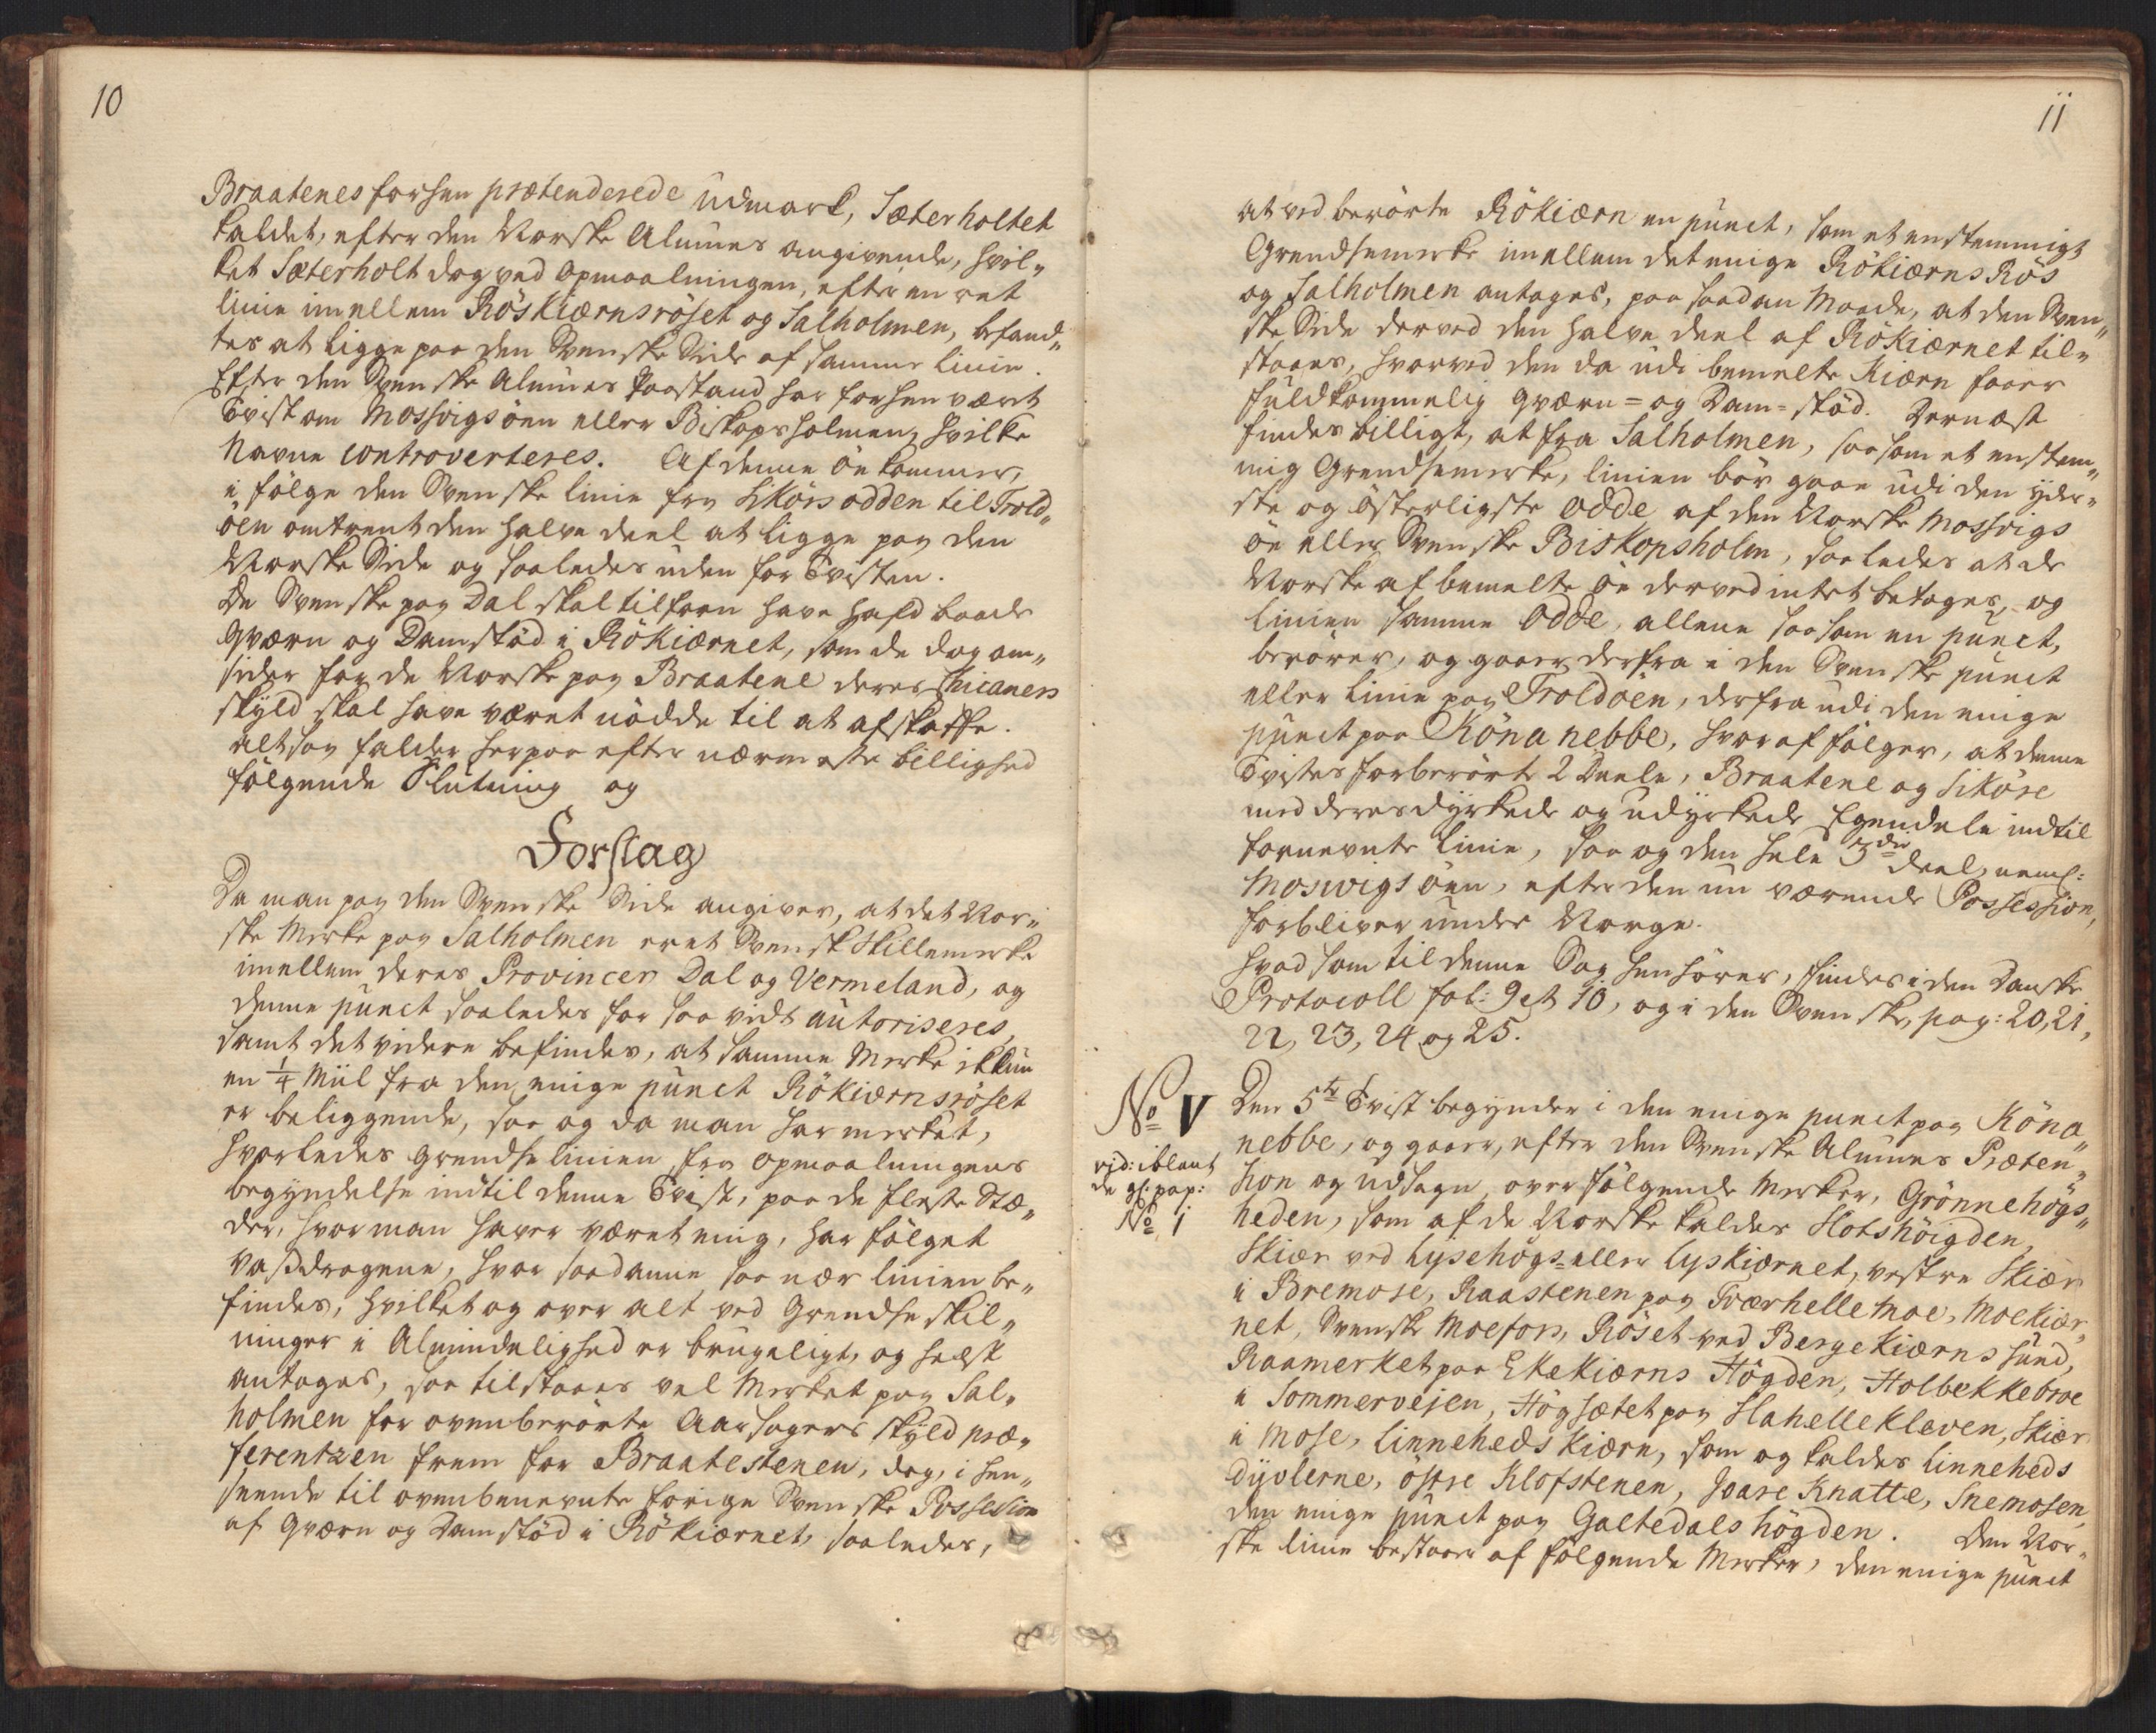 10
Braatenes forhen prætenderede Udmark, Sæterholtet
kaldet, efter den Norske Almues angivende, hvil„
ket Sæterholt dog ved Opmaalningen, efter en ret
linie imellem Röskiærnsröset og Salholmen, befand„
tes at ligge paa den Svenske Side af samme linie.
Efter den Svenske Almues Paastand har forhen været
Tvist om Mossvigsöen eller Biskopsholmen, hvilke
Navne controverteres. Af denne Öe kommer,
i fölge den Svenske linie fra Sikörsodden til Trold„
öen omtrent den halve deel at ligge paa den
Norske Side og saaledes uden for Tvisten.
De Svenske paa Dal skal tilforn have hafd baade
Qværn og Damstöd i Rökiærnet, som de dog om„
sider for de Norske paa Braatene deres Chicaners
skyld skal have været nödde til at afskaffe.
Altsaa falder herpaa efter nærmeste billighed
fölgende Slutning og
Forslag
Da man paa den Svenske Side angiver, at det Nor„
ske Merke paa Salholmen er et Svensk Skillemerke
imellem deres Provincer Dal og Vermeland, og
denne punct saaledes for saa vidt autoriseres,
samt det videre befindes, at samme Merke ikkun
en 1/4 Miil fra den enige punct Rökiærnsröset
er beliggende, saa og da man har merket,
hvorledes Grendse linien fra Opmaalningens
begyndelse indtil denne Tvist, paa de fleste Stæ„
der, hvor man haver været enig, har fölget
Vasdragene, hvor saadanne saa nær linien be„
findes, hvilket og over alt ved Grendse skil„
ninger i Almindelighed er brugeligt, og helst
antages, saa tilstaaes vel Merket paa Sal„
holmen for ovenberörte Aarsagers skyld præ„
ferentzen frem for Braatestenen, dog, i hen„
seende til ovenbenevnte forige Svenske Possession
af Qværn og Damstöd i Rökiærnet, saaledes,
11
at ved berörte Rökiærn en punct, som et enstemmigt
Grendsemerke imellem det enige Rökiærns Rös
og Salholmen antages, paa saadan Maade, at den Sven„
ske Side derved den halve deel af Rökiærnet til„
staaes, hvorved den da udi bemelte Kiærn faaer
fuldkommelig Qværn= og Dam=stöd. Dernæst
findes billigt, at fra Salholmen, saasom et enstem„
mig Grendsemerke, linien bör gaae udi den yder„
ste og österligste Odde af den Norske Mossvigs
öe eller Svenske Biskopsholm, saaledes at de
Norske af bemelte Öe derved intet betages, og
linien samme Odde, allene saasom en punct,
berörer, og gaaer derfra i den Svenske punct
eller linie paa Troldöen, derfra udi den enige
punct paa Köna nebbe, hvoraf fölger, at denne
Tvistes forberörte 2 Deele, Braatene og Siköre
med deres dyrkede og udyrkede Egendele indtil
fornevnte linie, saa og den hele 3die deel, neml:
Moswigs öen, efter den nu værende Possession,
forbliver under Norge.
Hvad som til denne Sag henhörer, findes i den Danske
Protocoll fol: 9 et 10, og i den Svenske, pag: 20, 21,
22, 23, 24 og 25.
No V
vid: iblant
de gl: pap:
No 1
Den 5te Tvist begynder i den enige punct paa Köna„
nebbe, og gaaer, efter den Svenske Almues Præten„
sion og Udsagn over fölgende Merker, Grönnehögs„
heden, som af de Norske kaldes Slotshöigden,
Skiær ved Lysehögs= eller Lyskiærnet, vestre Skiær
i Bremose, Raastenen paa Tværhelle Moe, Moekiær„
net, Svenske Moefors, Röset ved Bergekiærns sund,
Raamerket paa Ekekiærns Högden, Holbekkebroe
i Sommervejen, Högsætet paa Slahellekleven, Skiær
i Mose, Linneheds kiærn, som og kaldes Linneheds
dyvlerne, östre Klofstenen, Joare Knatte, Snemosen,
den enige punct paa Galtedals högden. Den Nor„
ske linie bestaar af fölgende Merker, den enige punct